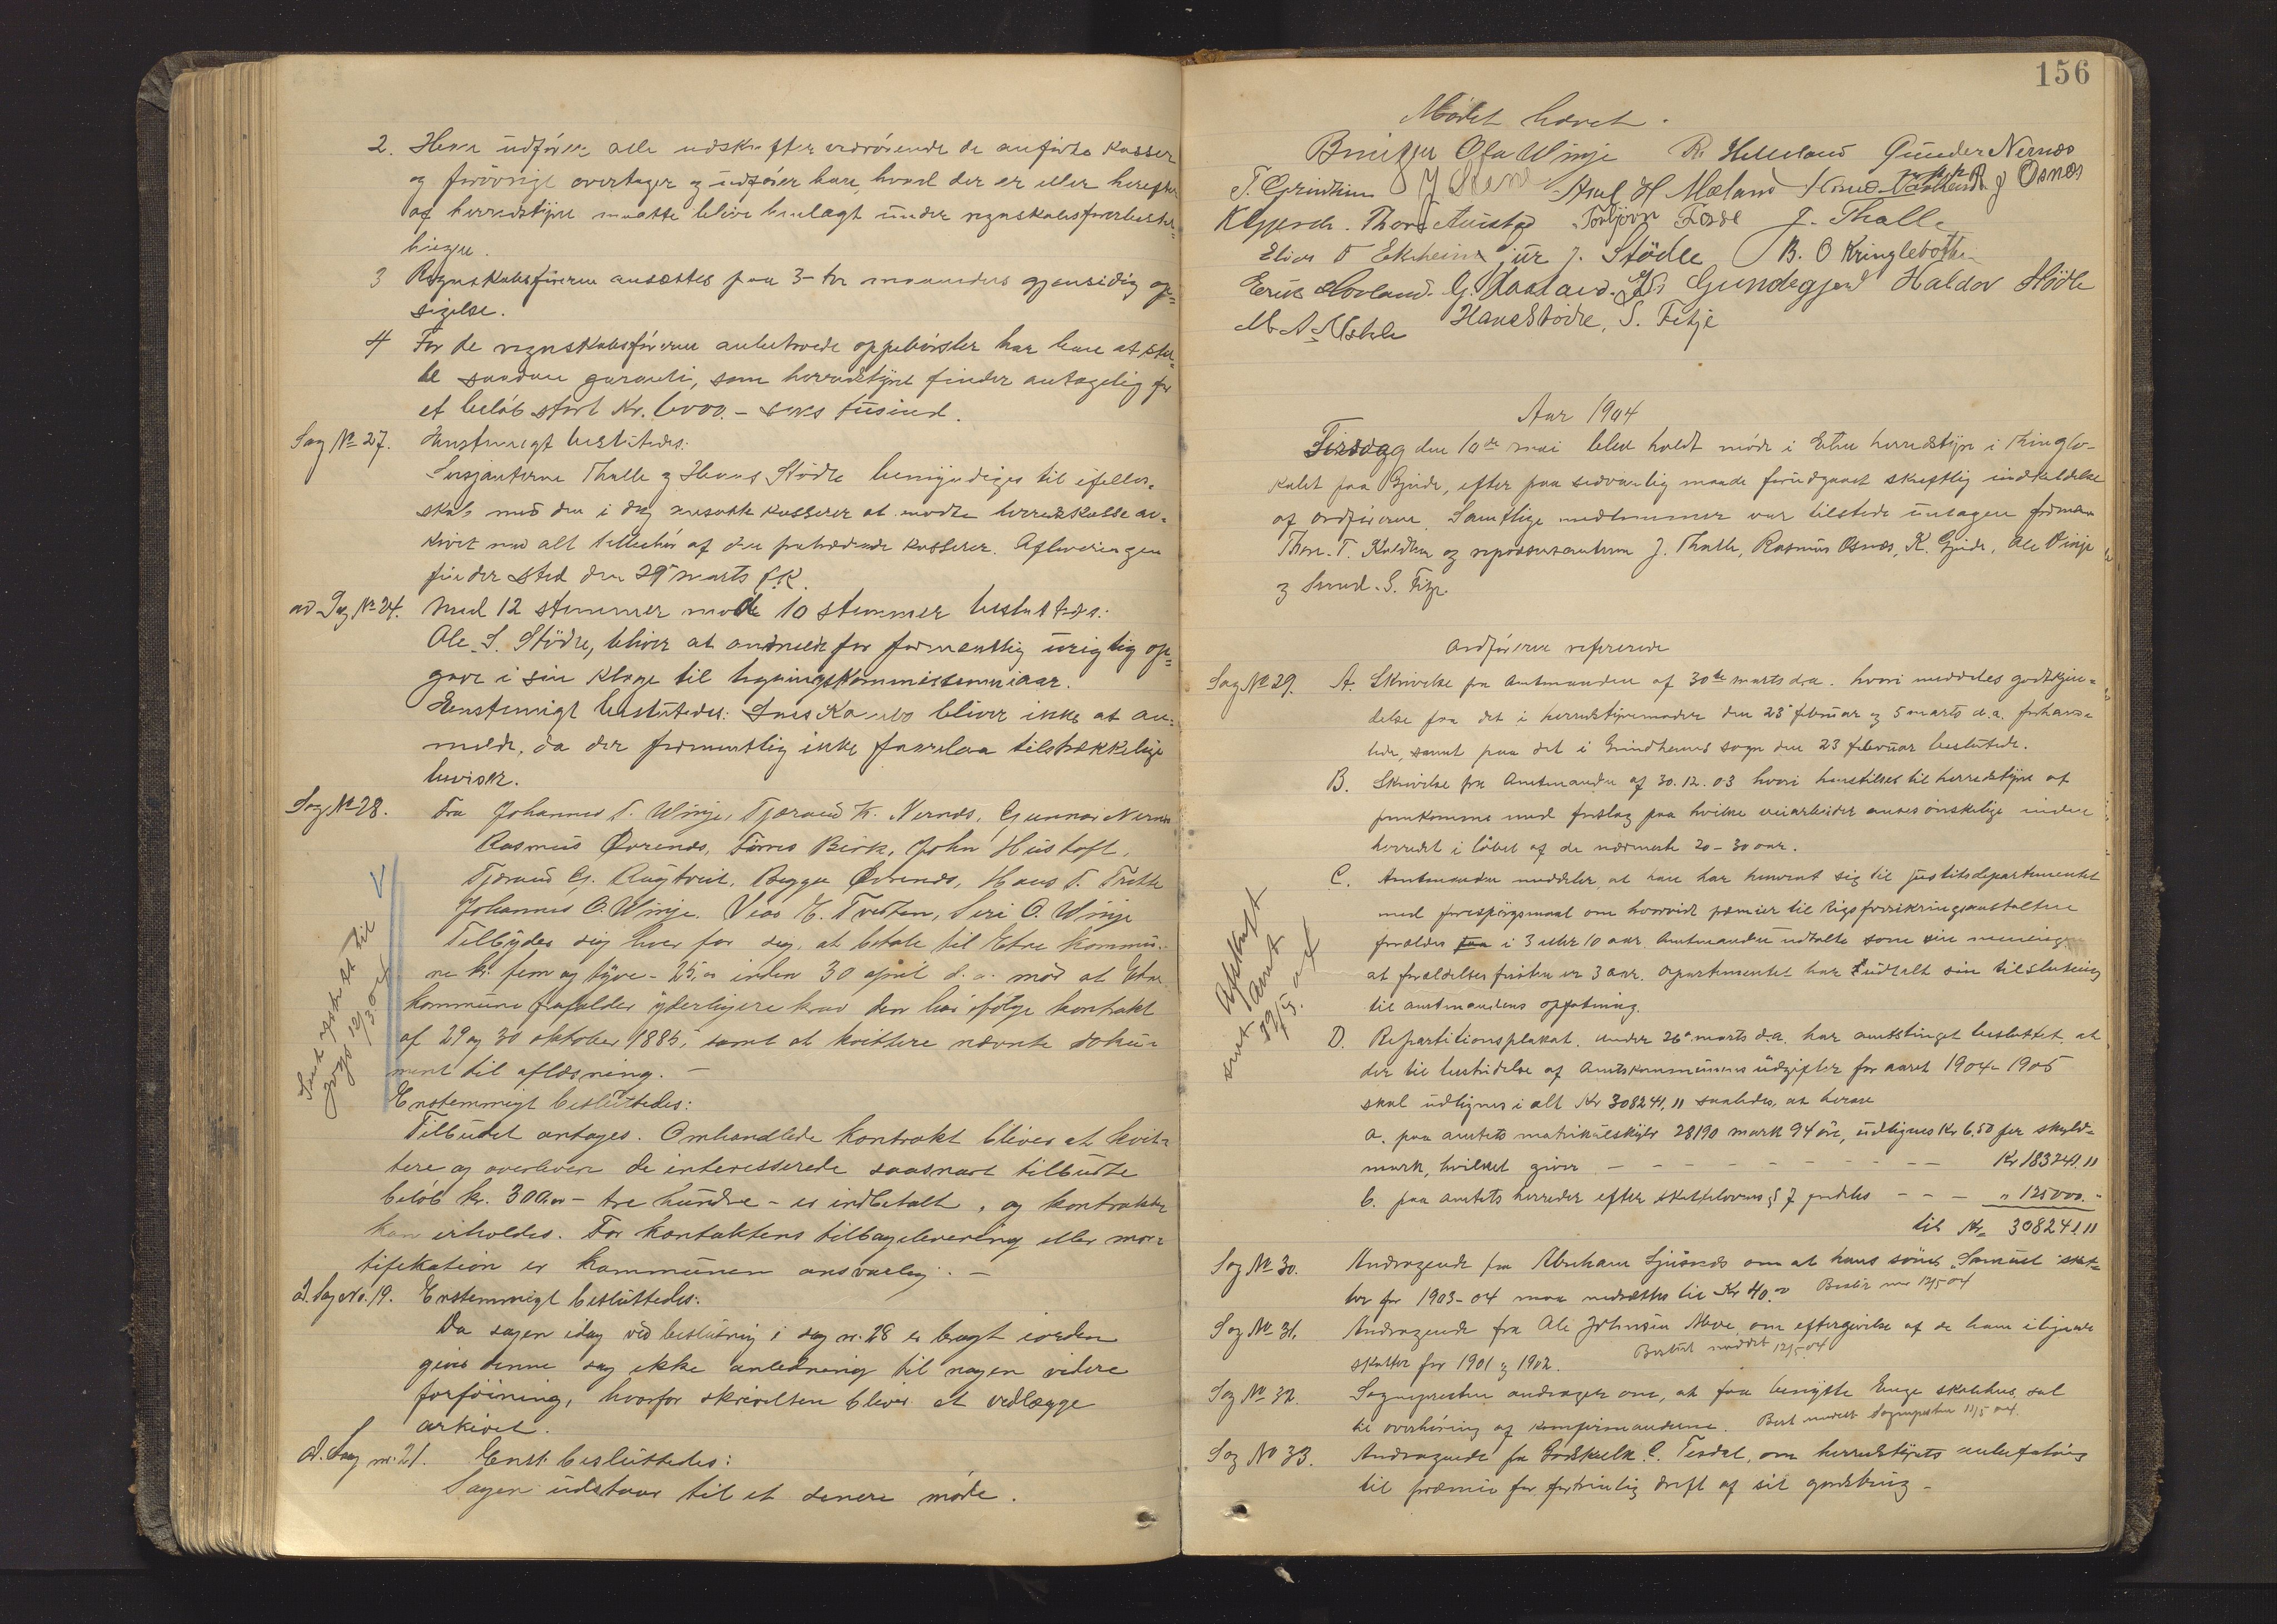 2. Han udfører alle udskrifter vedrørende de anførte kasser
og forøvrigt overtager og udfører han, hvad der er eller herefter
af herredstyret maatte blive henlagt under regnskabsførerbestil=
lingen.
3 Regnskabsføreren ansættes paa 3-tre maaneders gjensidig op=
sigelse.
4 For de regnskabsføreren anbetroede oppebørsler har han at stil=
le saadan garanti, som herredstyret finder antagelig for
et beløb stort Kr. 6000.- sex tusind.
Sag No 27. Enstemmigt besluttedes:
Sersjanterne Thalle og Hans Stödle bemyndiges til i felles=
skab med den i dag ansatte kasserer at modta herredskasse ar=
kivet med alt tilbehör af den fratrædende kasserer. Afleveringen
finder sted den 29de marts f.k.
ad Sag No 24. Med 12 stemmer mode 10 stemmer besluttedes:
Ole S. Stödle, bliver at anmelde for formentlig urigtig op=
gave i sin klage til ligningskommissionen iaar.
Enstemmigt besluttedes: bliver ikke at an=
melde, da der formentlig ikke forelaa tilstrækkelige
beviser.
Sag No 28. Fra Johannes T. Winje, Tjærand K. Nernæs, Gunnar Nernæs
Rasmus Øvrenæs, Tørres Birk, John Hustoft,
Tjærand G. Rugtveit, Bøgga Øvrenæs, Hans T. Trette
Johannes O. Winje. Vias E. Tvedten, Siri O. Winje
Tilbyder sig hver for sig, at betale til Etne kommu=
ne kr. fem og tyve - 25.00 inden 30 april d.a. mod at Etne
kommune frafalder yderligere krav den har ifølge kontrakt
af 29 og 30 oktober 1885, samt at kvittere nævnte doku=
ment til aflæsning. -
Sendt afskrift til
fogd 12/3 04
V
Enstemmigt besluttedes:
Tilbudet antages. Omhandlede kontrakt bliver at kvit=
tere og overlevere de interesserede saasnart tilbudte
beløb kr. 300.00 - tre hundre - er indbetalt, og kontrakten
kan erholdes. For kontraktens tilbagelevering eller mor=
tifikation er kommunen ansvarlig. -
ad. Sag No. 19. Enstemmigt besluttedes:
Da sagen idag ved beslutning i sag nr. 28 er bragt iorden
giver denne sag ikke anledning til nogen videre
forföining, hvorfor skrivelsen bliver at vedlægge
arkivet.
ad. Sag nr. 21. Enst. besluttedes:
Sagen udstaar til et senere møde.
156
Mödet hævet.
Ola Winje R. Helleland Gunder Nernæs
T. Grindheim J Stene Axel H Mæland R J Osnæs
K Gjerde. Thore Austad Torbjörn Fosse J. Thalle
Elias T Ekrheim jur J. Stödle B. O Kringlebotten
Erik Hovland. G. Haaland. Gundegjerd Haldor Stödle
Hans Stödle, S. Fitje
Aar 1904
Tirsdag den 10de mai blev holdt møde i Etne herredstyre i Thinglo-
kalet paa Gjerde, efter paa sedvanlig maade forudgaaet skriftlig indkaldelse
af ordföreren. Samtlige medlemmer var tilstede undtagen formændene
Thore T. og repræsentanterne J. Thalle, Rasmus Osnæs, K. Gjerde, Ole Vinje
og Svend S. Fitje.
Ordföreren refererede
Sag No 29. A. Skrivelse fra Amtmanden af 30te marts d.a. hvori meddeles godkjen=
delse paa det i herredstyremøderne den 23de februar og 5 marts d.a. forhand=
lede, samt paa det i Grindheims sogn den 23 februar besluttede.
B. Skrivelse fra Amtmanden af 30.12.03 hvori henstilles til herredstyret at
fremkomme med forslag paa hvilke veiarbeider ansees ønskelige inden
herredet i løbet af de nærmeste 20-30 aar.
C. Amtmanden meddeler, at han har henvent sig til justitsdepartementet
med forespörgsmaal om hvorvidt præmier til Rigsforsikringsanstalten
forældes i 3 eller 10 aar. Amtmanden udtalte som sin mening
at forældelsesfristen er 3 aar. Departementet har udtalt sin tilslutning
til amtmandens opfatning.
Afskrift
sendt Lamt
19/5. 04
D. Repartitionsplakat. Under 26de marts d.a. har amtstinget besluttet, at
der til bestridelse af Amtskommunens udgifter for aaret 1904-1905
skal udlignes i alt Kr 308241,11 saaledes, at herav
a. paa amtets matrikulskyld 28190 mark 94 öre, udlignes Kr 6.50 per skyld=
mark, hvilket giver - - - - - - - - - - Kr 183241.11
b. paa amtets herreder efter skatteloven § 7 fordeles - - - " 125000.-
til Kr. 308241.11
Sag No 30. Andragende fra Abraham Sjusnæs om at hans söns Samuel skat=
ter for 1903-04 maa nedsættes til Kr 40.00 12/5 04
Sag No 31. Andragende fra Ole Johnsen om eftergivelse af de ham ilignede
skatter for 1901 og 1902. Beslut meddelt 12/5 04
Sag No 32. Sognepresten andrager om, at faa benytte Enge skolehus sal
til overhöring af konfirmanderne. Besl meddelt Sognepresten 11/5 04.
Sag No 33. Andragende fra Godskalk C. Tesdal, om herredstyrets anbefaling
til præmie for fortrinlig drift af sit gaardsbrug -